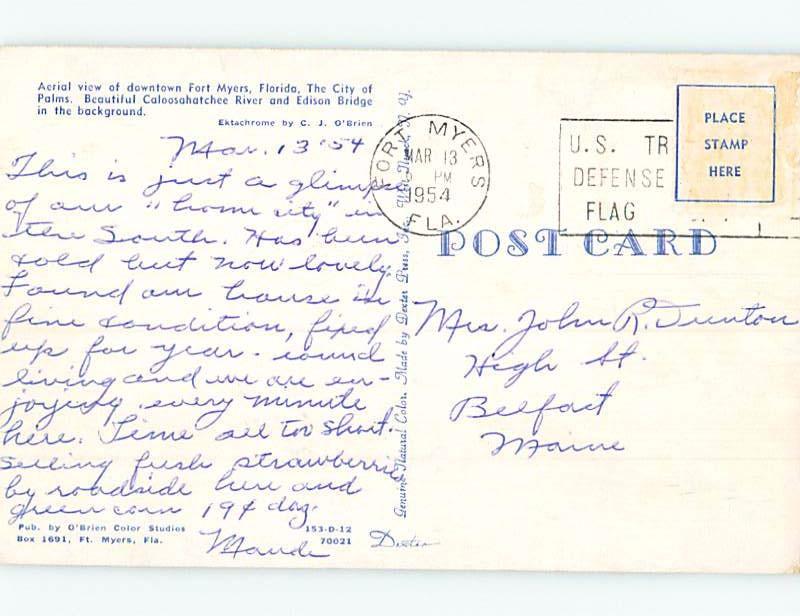 Aerial view of downtown Fort Myers, Florida, The City of
Palms. Beautiful Caloosahatchee River and Edison Bridge
in the background.
Ektachrome by C. J. O'Brien
Mar. 13 '54
This is just a glimpse
of our "home city" in
the South. Has been
cold but now lovely.
Found our house in
fine condition, fixed
up for year-round
living and we are en-
joying every minute
here. Time all too short.
Selling fresh strawberries
by roadside here and
green corn 19¢ doz.
Maude
Pub. by O'Brien Color Studios
Box 1691, Ft. Myers, Fla.
153-D-12
70021
Dexter
Genuine Natural Color. Made by Dexter Press, Inc., West Nyack, N. Y.
FORT MYERS
MAR 13
PM
1954
FLA.
U.S. TR
DEFENSE
FLAG
PLACE
STAMP
HERE
POST CARD
Mrs. John R. Dunton
High St.
Belfast
Maine